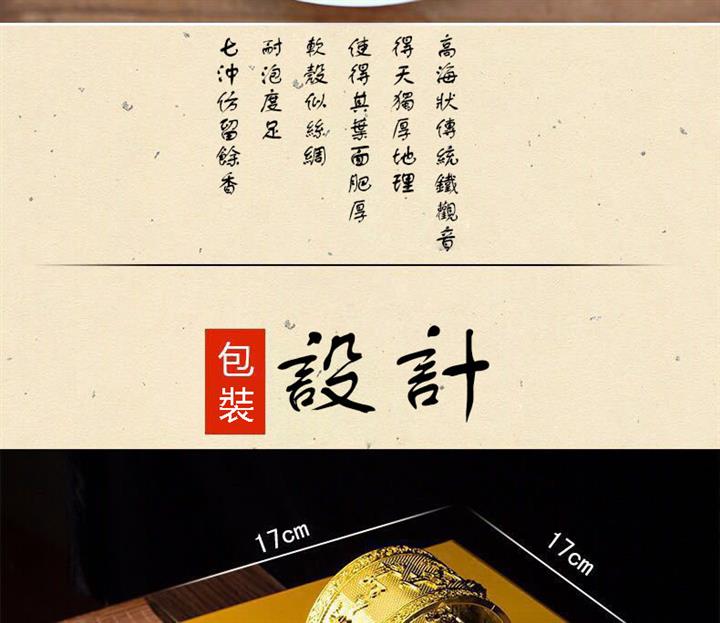 高海狀傳統鐵觀音
得天獨厚地理
使得其葉面肥厚
軟殼似絲綢
耐泡度足
七沖仿留餘香
包裝
設計
17cm
17cm